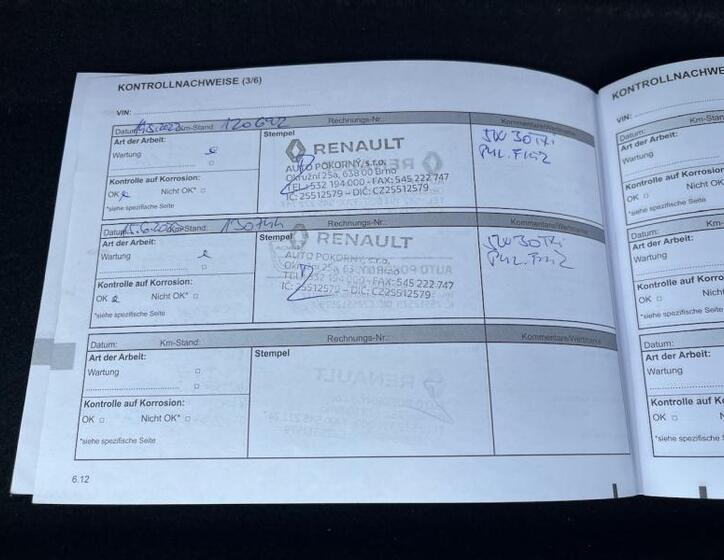 KONTROLLNACHWEISE (3/6)
VIN:
Datum: Km-Stand: 120692 Rechnungs-Nr.:
Art der Arbeit:
Wartung
Kontrolle auf Korrosion:
OK Nicht OK*
*siehe spezifische Seite
Stempel
RENAULT
AUTO POKORNÝ, s.r.o.
Okružní 25a, 638 00 Brno
TEL.: 532 194 000 - FAX: 545 222 747
IČ: 25512579 – DIČ: CZ25512579
5W30
Datum: Km-Stand: 130744 Rechnungs-Nr.:
Kommentare/Wertmarke
Art der Arbeit:
Wartung
Kontrolle auf Korrosion:
OK Nicht OK*
*siehe spezifische Seite
Stempel
RENAULT
AUTO POKORNÝ, s.r.o.
Okružní 25a, 638 00 Brno
TEL.: 532 194 000 - FAX: 545 222 747
IČ: 25512579 – DIČ: CZ25512579
5W30
Datum: Km-Stand: Rechnungs-Nr.: Kommentare/Wertmarke
Art der Arbeit:
Wartung
Kontrolle auf Korrosion:
OK Nicht OK*
*siehe spezifische Seite
Stempel
6.12
KONTROLLNACHWE
VIN:
Datum: Km-Stan
Art der Arbeit:
Wartung
Kontrolle auf Korrosion
OK Nicht OK
*siehe spezifische Seite
Datum:
Art der Arbeit:
Wartung
Kontrolle auf Korrosi
OK Nicht O
*siehe spezifische Seite
Datum: Km-
Art der Arbeit:
Wartung
Kontrolle auf K
OK Nic
*siehe spezifische